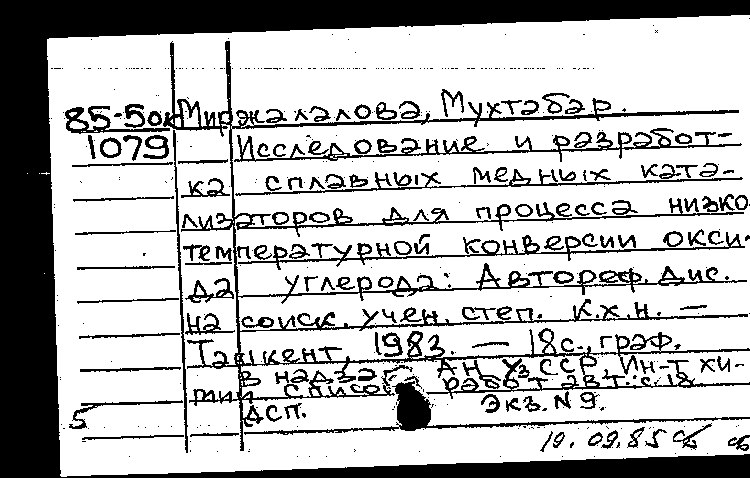 85-5ок Миржалалова, Мухтабар.
1079 Исследование и разработ-
ка сплавных медных ката-
лизаторов для процесса низко-
температурной конверсии окси-
да углерода: Автореф. дис.
на соиск. учен. степ. к.х.н. —
Ташкент, 1983. — 18 с., граф.
в надзаг. АН УзССР, Ин-т хи-
мии Список работ авт.: с. 18
5 ДСП. Экз. N 9.
19.09.85